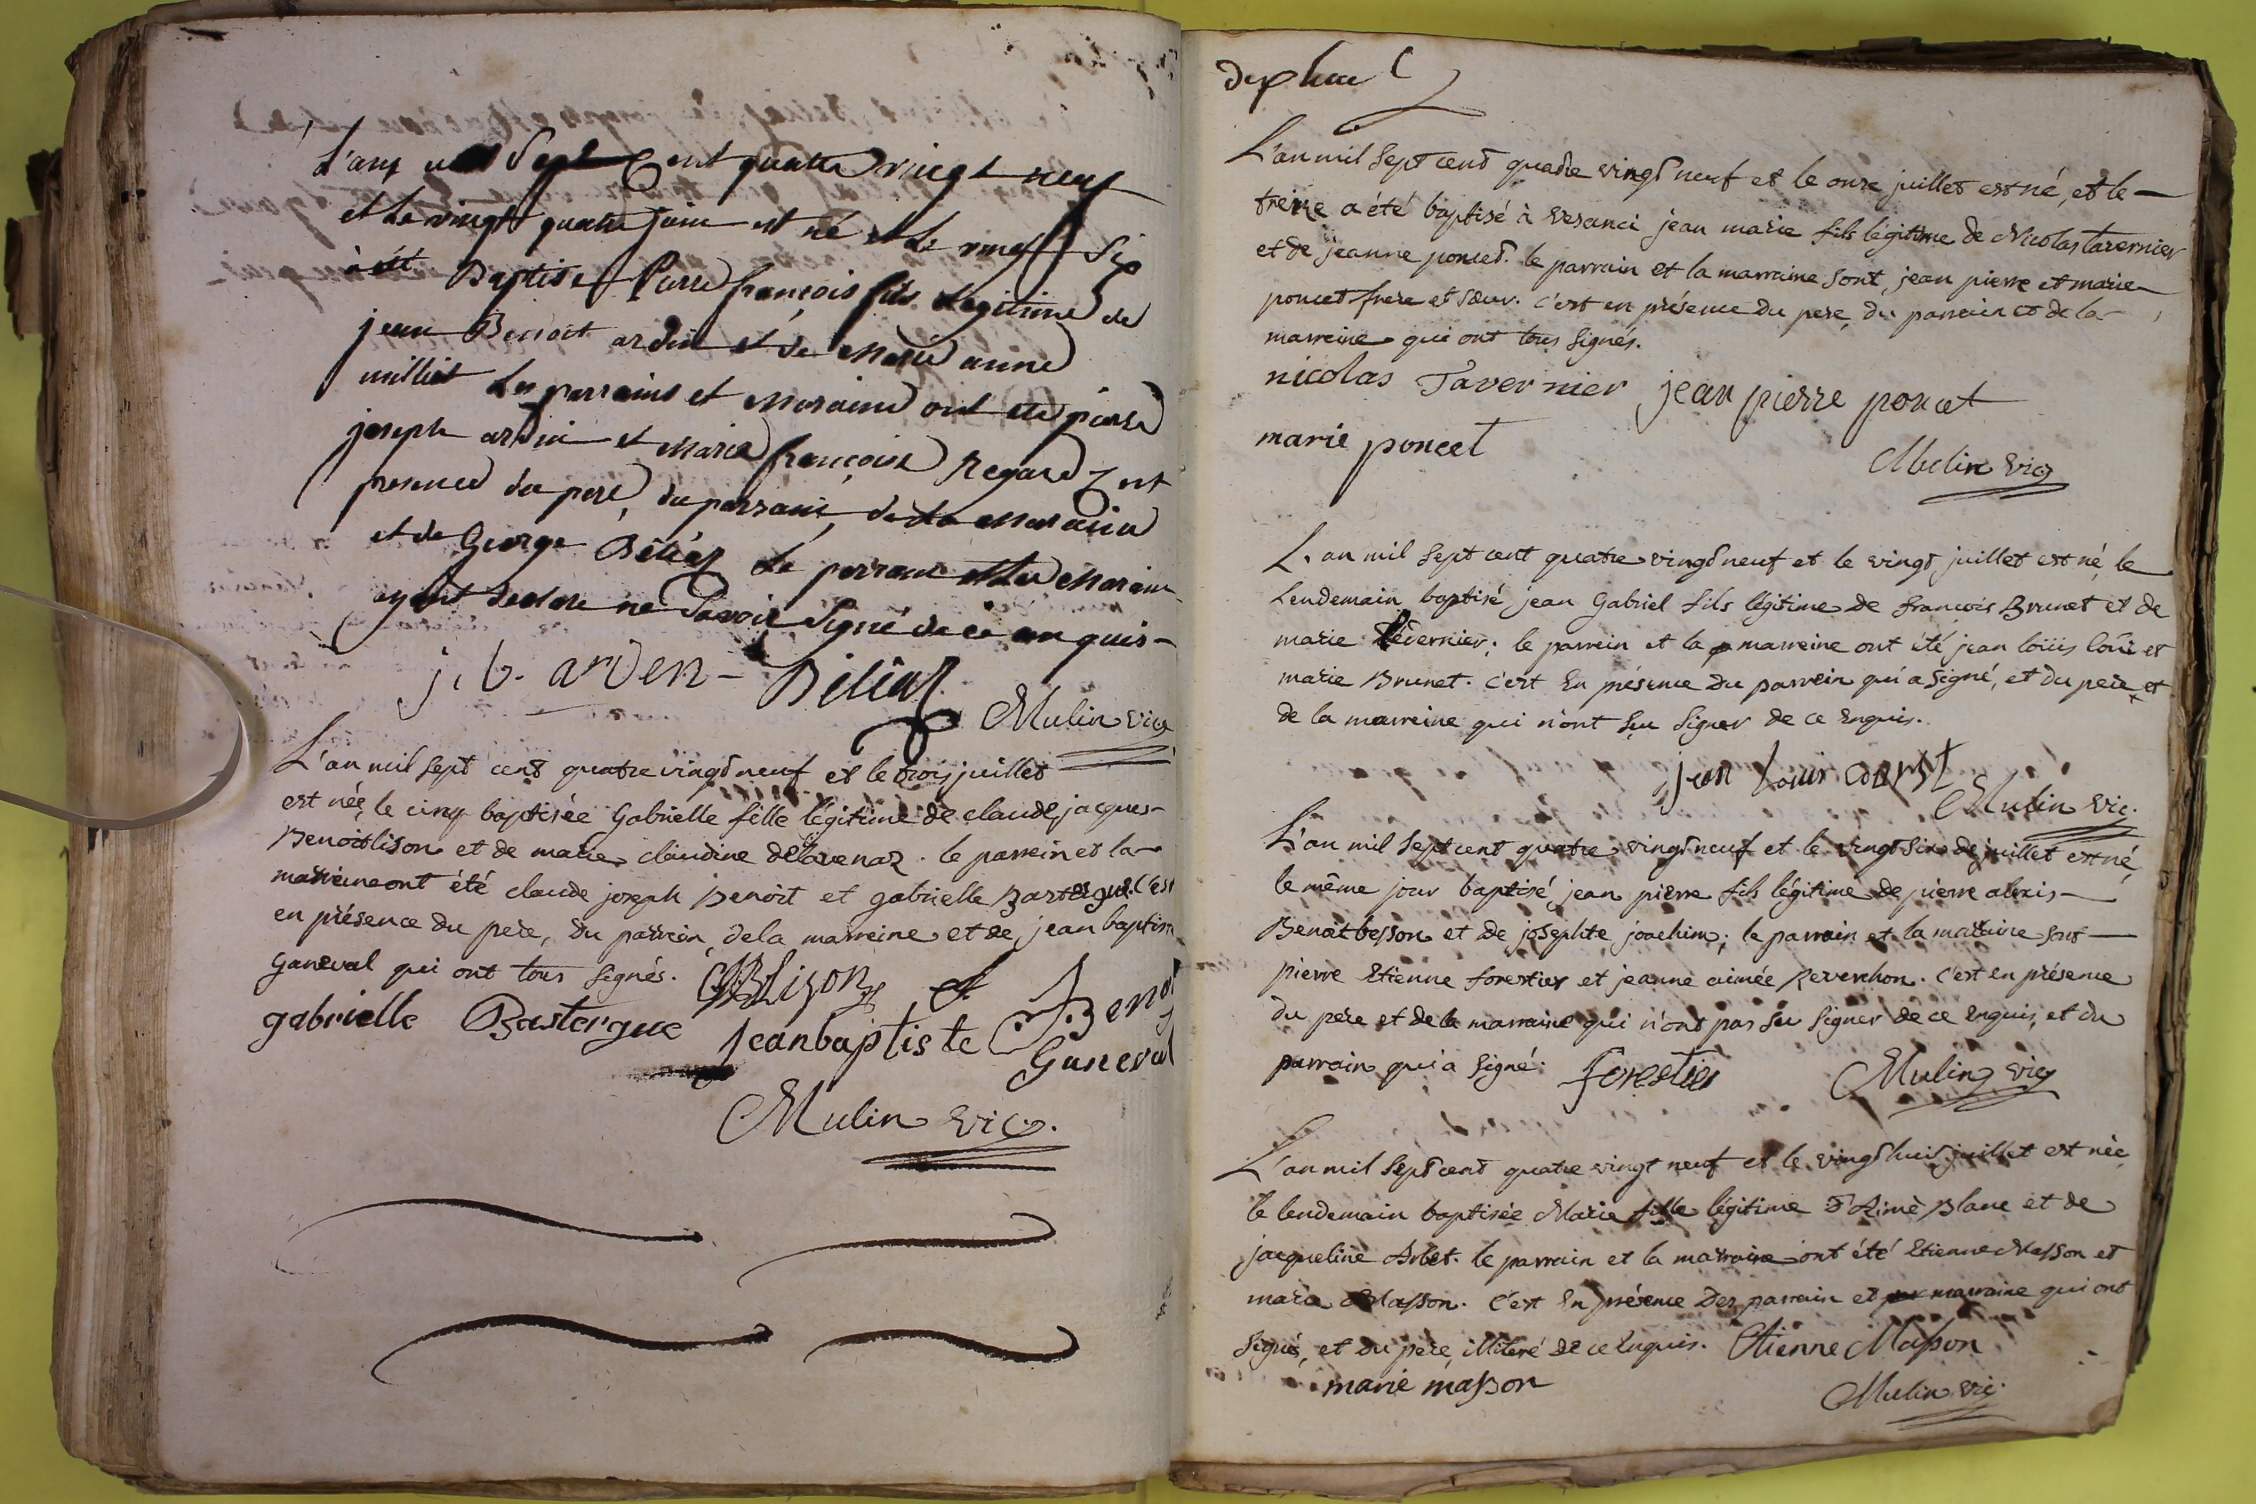 L'an mil Sept Cent quatre vingt neuf
et Le vingt quatre juin est né et Le vingt Six
à été Baptisé Pierre françois fils Legitime de
jean Benoit arden et de Marie anne
milliet Les parrains et Maraine ont été pierre
joseph arden et Marie françoise Regard Zent
presence du pere, du parrain, de La Maraine
et de George Béliaz Le parrain et La Maraine
ayant declare ne Savoir Signé de ce enquis
j. b. arden Béliaz
Mulin vic
L'an mil sept cent quatre vingt neuf et le trois juillet
est née, le cinq baptisée Gabrielle fille légitime de claude jacques
Benoitlison et de marie claudine delavenaz. le parrein et la
marreine ont été claude joseph Benoit et gabrielle Bastergue. C'est
en présence du pere, du parrein, de la marreine et de jean baptiste
Ganeval qui ont tous signés. Lizon
gabrielle Bastergue
jean baptiste Ganeval
Mulin vic.
L'an mil sept cent quatre vingt neuf et le onze juillet est né, et le
treize a été baptisé à vesanci jean marie fils légitime de Nicolas tavernier
et de jeanne poncet. le parrain et la marraine sont, jean pierre et marie
poncet frere et sœur. C'est en présence du pere, du parrain et de la
marreine qui ont tous signés.
nicolas Tavernier jean pierre poncet
marie poncet
Mulin vic
L'an mil sept cent quatre vingt neuf et le vingt juillet est né, le
lendemain baptisé jean Gabriel fils légitime de françois Brunet et de
marie ; le parrein et la marreine ont été jean loüis et
marie Brunet. C'est En présence du parrein qui a signé, et du pere, et
de la marreine qui n'ont sçu signer de ce Enquis.
jean Louis
Mulin vic.
L'an mil sept cent quatre vingt neuf et le vingt six de juillet est né,
le même jour baptisé, jean pierre fils légitime de pierre alexis
Benoitbesson et de josephte joachim; le parrain et la marraine sont
pierre Etienne forestier et jeanne aimée Reverchon. C'est en présence
du pere et de la marraine qui n'ont pas sçu signer de ce enquis, et du
parrain qui a signé. forestier Mulin vic
L'an mil sept cent quatre vingt neuf et le vingt huit juillet est née
le lendemain baptisée Marie fille légitime d'Aimé Blanc et de
jacqueline Arbet. le parrain et la marraine ont été Etienne Masson et
marie Masson. C'est En présence des parrain et marraine qui ont
signés, et du pere, illiteré de ce Enquis. Etienne Masson
marie masson
Mulin vic.